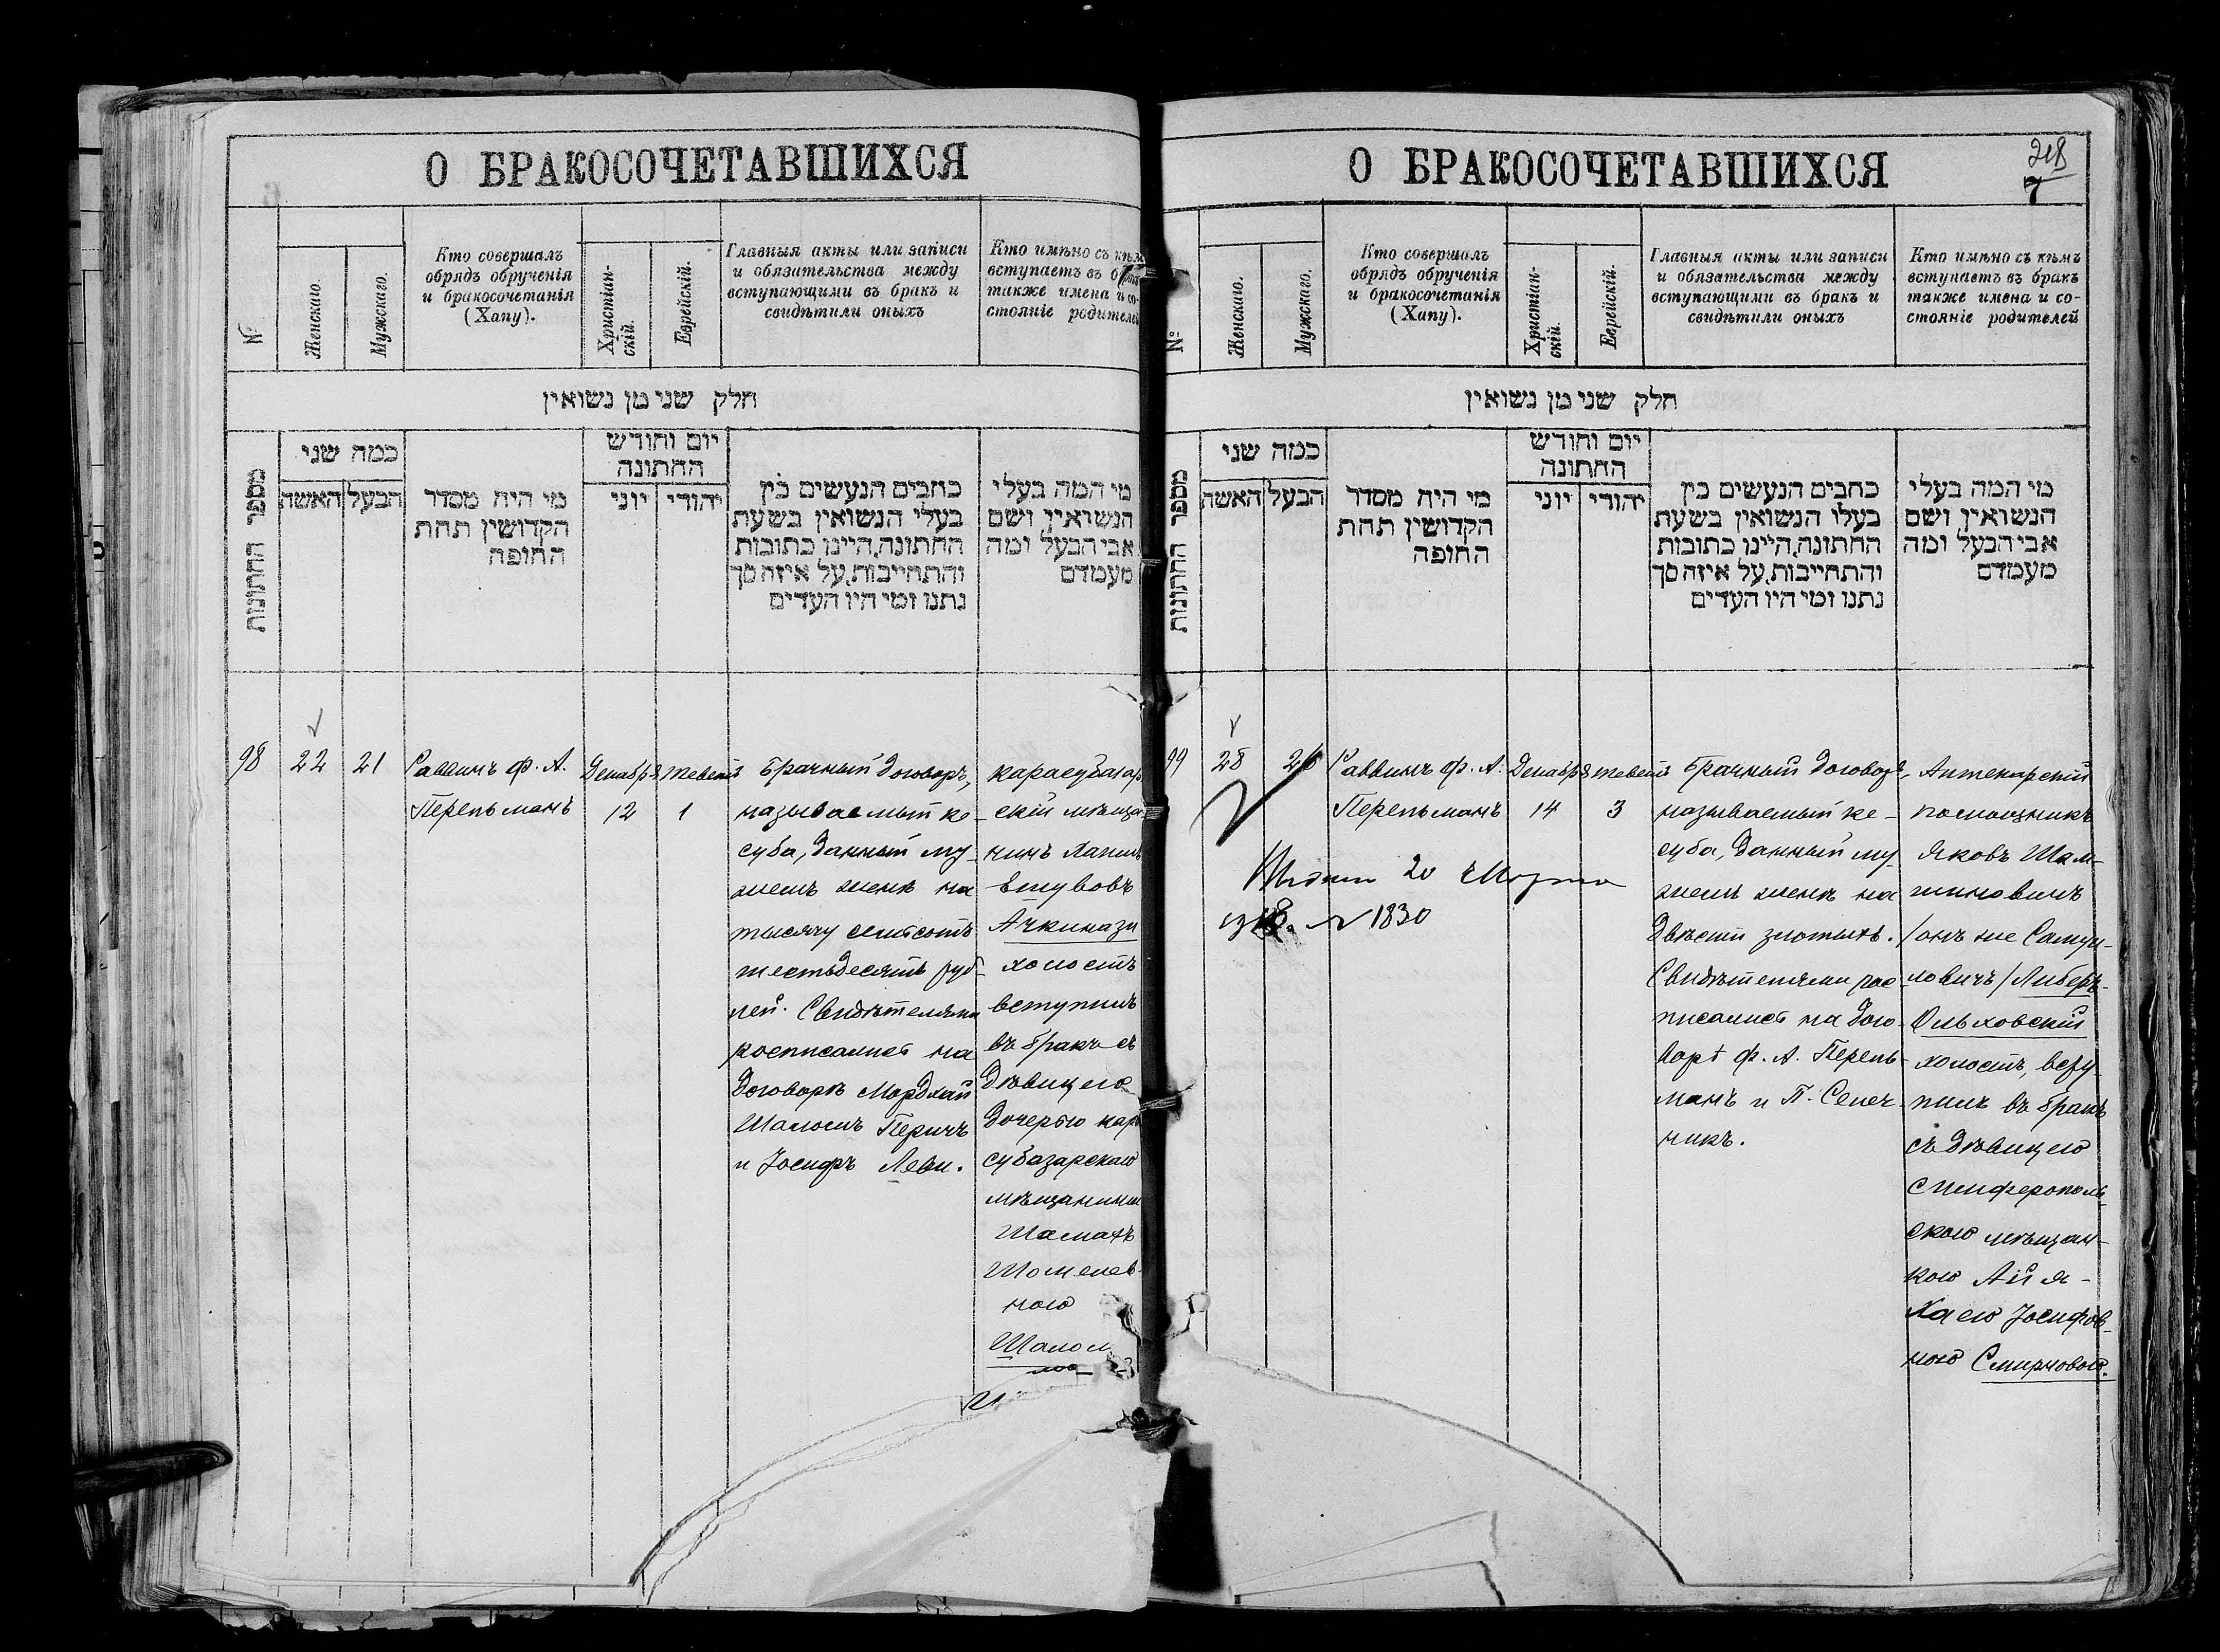 О БРАКОСОЧЕТАВШИХСЯ
№
Женскаго.
Мужскаго.
Кто совершалъ
обрядъ обрученія
и бракосочетанія
(Хапу).
Христіан-
скій.
Еврейскій.
Главныя акты или записи
и обязательства между
вступающими въ бракъ и
свидѣтили оныхъ
Кто имѣно съ кѣм
вступаетъ въ
также имена и со-
стояніе родителей
חלק שני מן נשואין
מספר החתונות
כמה שני
האשה
הבעל
מי היה מסדר
הקדושין תחת
החופה
יום וחודש
החתונה
יוני
יהודי
כתבים הנעשים בין
בעלי הנשואין בשעת
החתונה, היינו כתובות
והתחייבות, על איזה סך
נתנו ומי היו העדים
מי המה בעלי
הנשואין, ושם
אבי הבעל ומה
מעמדם
98
22
21
Раввинъ Ф. А.
Перельманъ
Декабря
12
Тевеѳъ
1
Брачный договоръ,
называемый ке-
суба, данный му-
жемъ женѣ на
тысячу семьсотъ
шестьдесятъ руб-
лей. Свидѣтелями
росписались на
договорѣ Мордхай
Шаломъ Перичъ
и Іосифъ Леви.
карасубазар
скій мѣща
нинъ
Ачкинази
холостъ
вступилъ
въ бракъ съ
дѣвицею
дочерью кара
субазарскаго
мѣщанина
Шамахъ
Шомелев-
ною
Шалом
О БРАКОСОЧЕТАВШИХСЯ
218
7
№
Женскаго.
Мужскаго.
Кто совершалъ
обрядъ обрученія
и бракосочетанія
(Хапу).
Христіан-
скій.
Еврейскій.
Главныя акты или записи
и обязательства между
вступающими въ бракъ и
свидѣтили оныхъ
Кто имѣно съ кѣмъ
вступаетъ въ бракъ
также имена и со-
стояніе родителей
חלק שני מן נשואין
מספר החתונות
כמה שני
האשה
הבעל
מי היה מסדר
הקדושין תחת
החופה
יום וחודש
החתונה
יוני
יהודי
כתבים הנעשים בין
בעלי הנשואין בשעת
החתונה, היינו כתובות
והתחייבות, על איזה סך
נתנו ומי היו העדים
מי המה בעלי
הנשואין, ושם
אבי הבעל ומה
מעמדם
99
28
26
Раввинъ Ф. А.
Перельманъ
Декабря
14
Тевеѳъ
3
20 Марта
1830
Брачный договоръ,
называемый ке-
суба, данный му-
жемъ женѣ на
двѣсти злотыхъ.
Свидѣтелями рос-
писались на дого-
ворѣ Ф. А. Перель-
манъ и П. Селеч-
никъ.
Аптекарскій
помощникъ
Яковъ
/онъ же Самуи-
ловичъ/ Либеръ-
Ольховскій
холостъ, всту-
пилъ въ бракъ
съ дѣвицею
Симферополь-
скою мѣщан-
кою
Хаею Іосифов-
ною Смирновою.